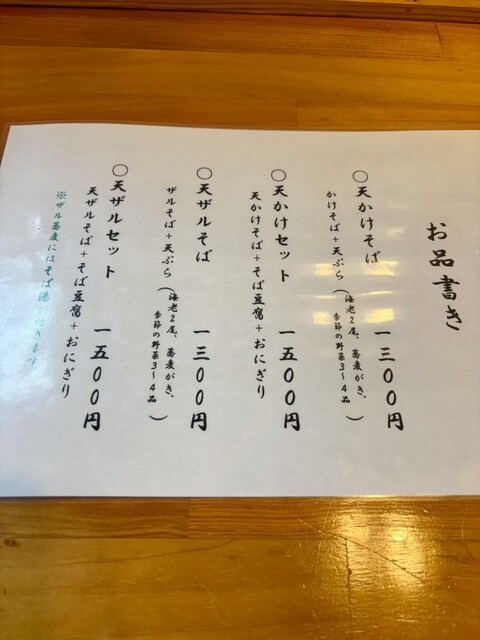 お品書き
〇天かけそば 一三〇〇円
かけそば+天ぷら(海老2尾、蕎麦がき、
季節の野菜3〜4品)
〇天かけセット 一五〇〇円
天かけそば+そば豆腐+おにぎり
〇天ザルそば 一三〇〇円
ザルそば+天ぷら(海老2尾、蕎麦がき、
季節の野菜3〜4品)
〇天ザルセット 一五〇〇円
天ザルそば+そば豆腐+おにぎり
※ザル蕎麦にはそば湯が付きます